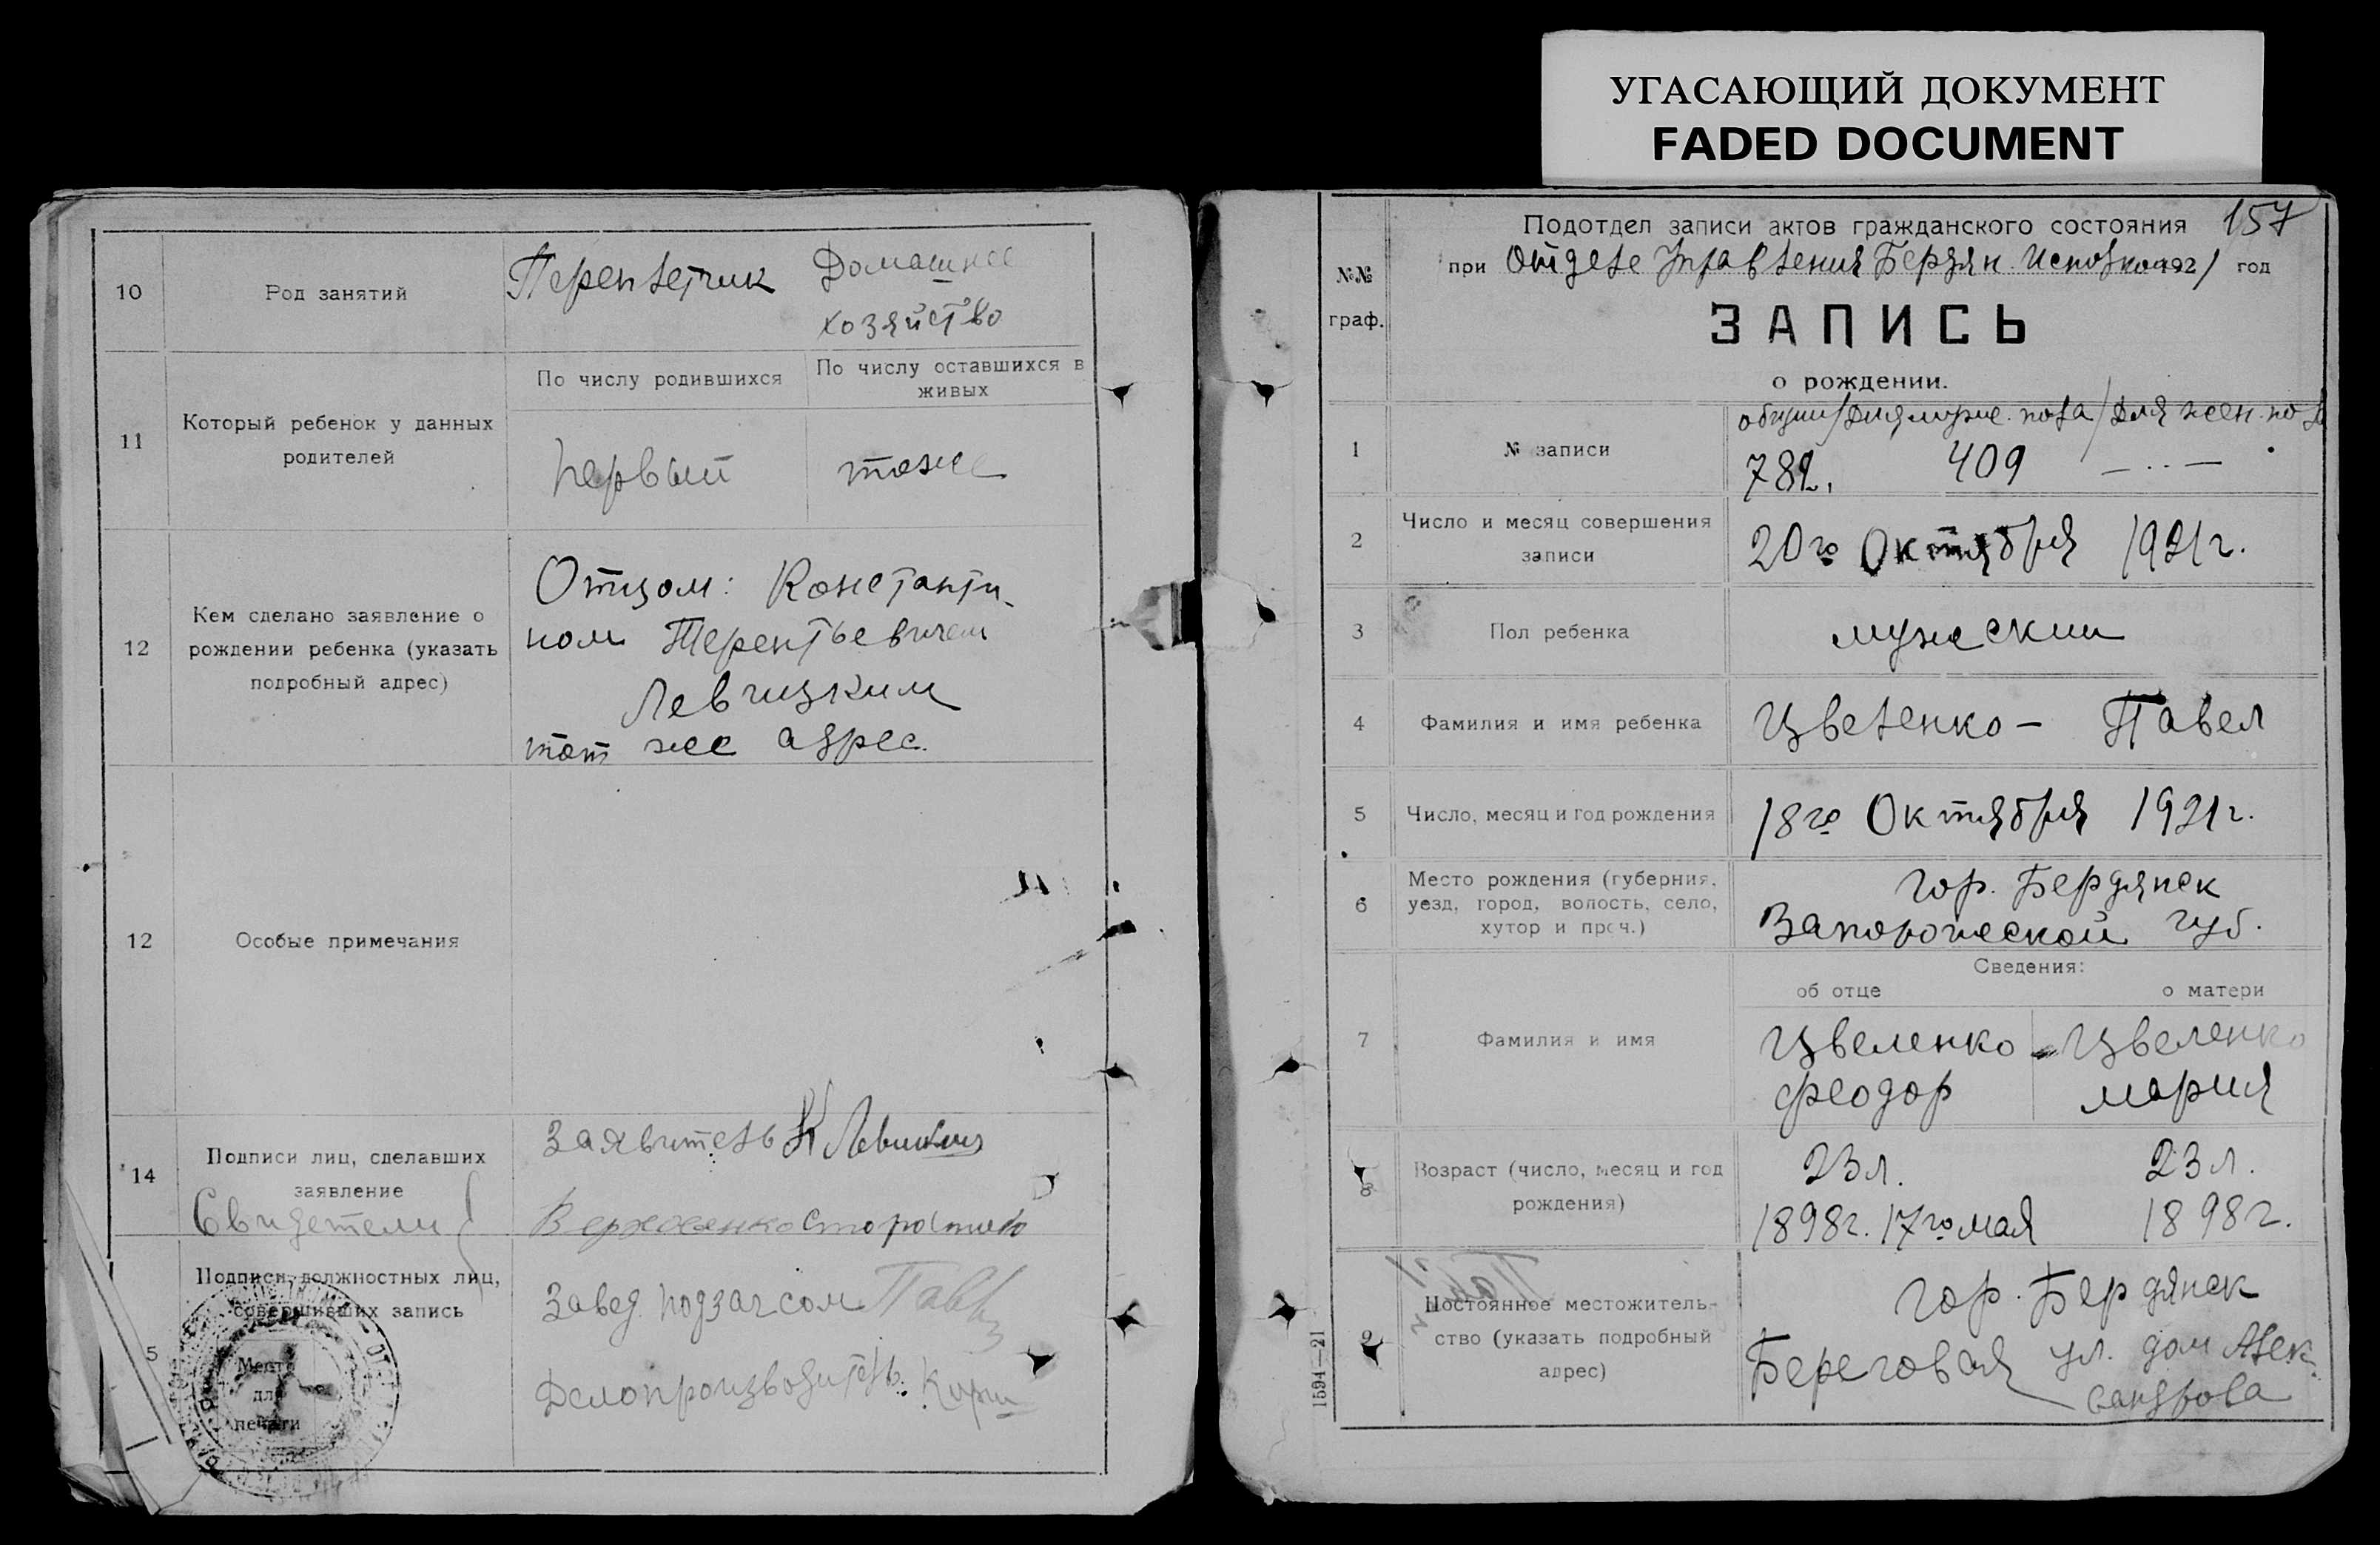 УГАСАЮЩИЙ ДОКУМЕНТ
FADED DOCUMENT
10
Род занятий
Переплетчик
Домашнее
хозяйство
11
Который ребенок у данных
родителей
По числу родившихся
По числу оставшихся в
живых
первый
тоже
12
Кем сделано заявление о
рождении ребенка (указать
подробный адрес)
Отцом: Константи-
ном Терентьевичем
Левицким
тот же адрес.
12
Особые примечания
14
Подписи лиц, сделавших
заявление
Свидетели
Заявитель К Левицкий
5
Подписи должностных лиц,
совершивших запись
Место
для
печати
Завед. подзагсом
Делопроизводитель
157
№№
граф.
Подотдел записи актов гражданского состояния
при Отделе Управления Бердян. Исполкома 1921 год
ЗАПИСЬ
о рождении.
1
№ записи
общий/для муже. пола/для жен. пола
782. 409 — .. —
2
Число и месяц совершения
записи
20го Октября 1921г.
3
Пол ребенка
мужеский
4
Фамилия и имя ребенка
Цвеленко — Павел
5
Число, месяц и год рождения
18го Октября 1921г.
6
Место рождения (губерния,
уезд, город, волость, село,
хутор и проч.)
гор. Бердянск
Запорожской губ.
Сведения:
об отце
о матери
7
Фамилия и имя
Цвеленко
Феодор
Цвеленко
Мария
8
Возраст (число, месяц и год
рождения)
23л.
1898г. 17го мая
23л.
1898г.
9
Постоянное местожитель-
ство (указать подробный
адрес)
гор. Бердянск
Береговая ул. дом Алек-
сандрова
1594—21